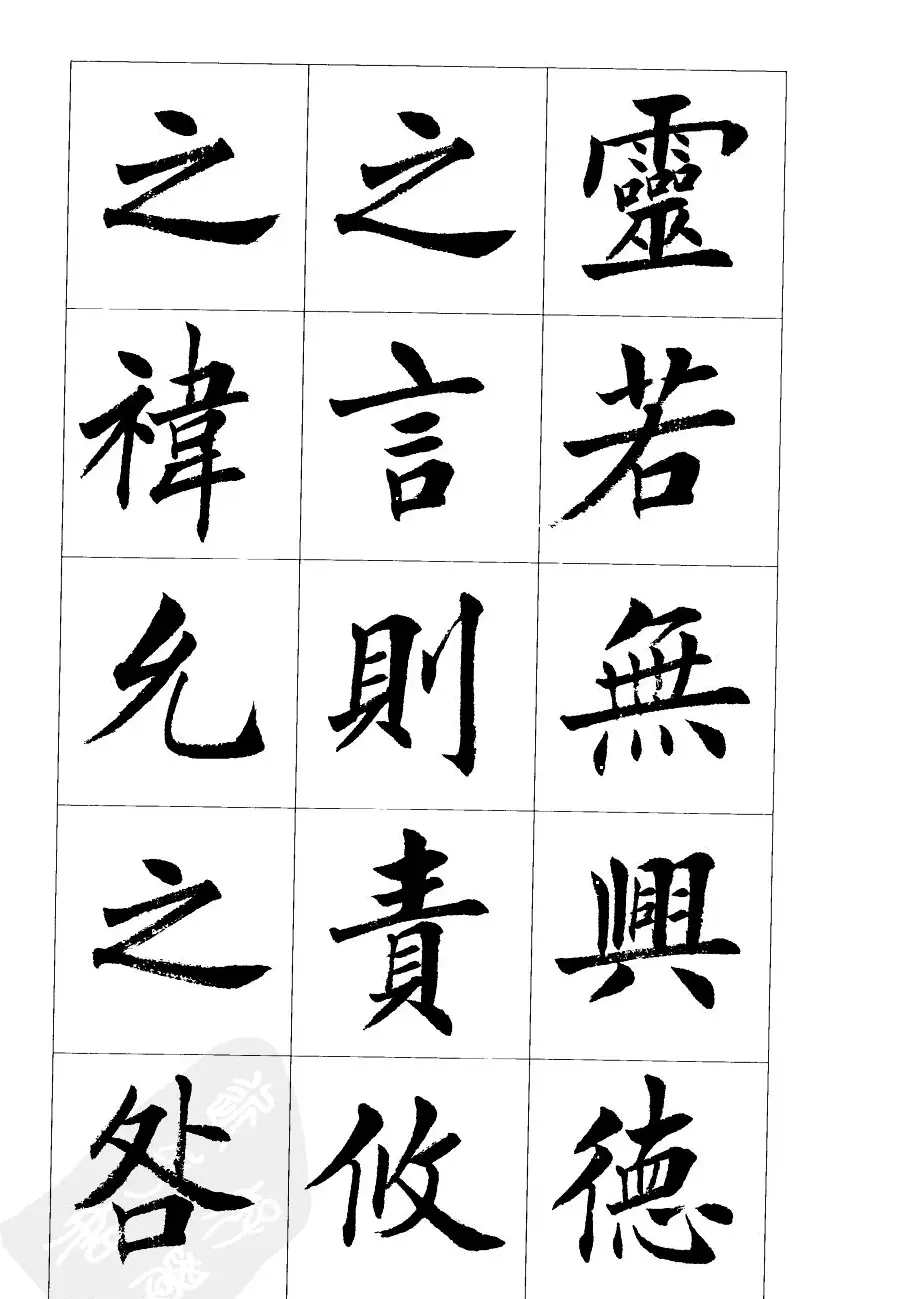 靈若無興德
之言則責攸
之禕允之咎